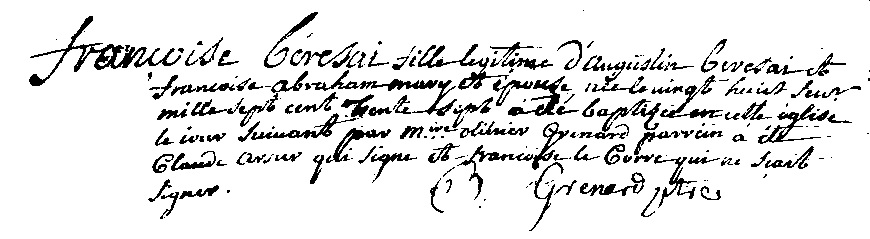 francoise Ceresai fille legitime d'augustin Ceresai et
francoise abraham mary et épouse, née le vingt huict
mille sept cent trente sept a été baptizée en cette église
le iour suivant par m.ire olivier Grenard parrein a été
Claude qui signe et francoise le Corre qui ne sçait
signer.
Grenard ptre